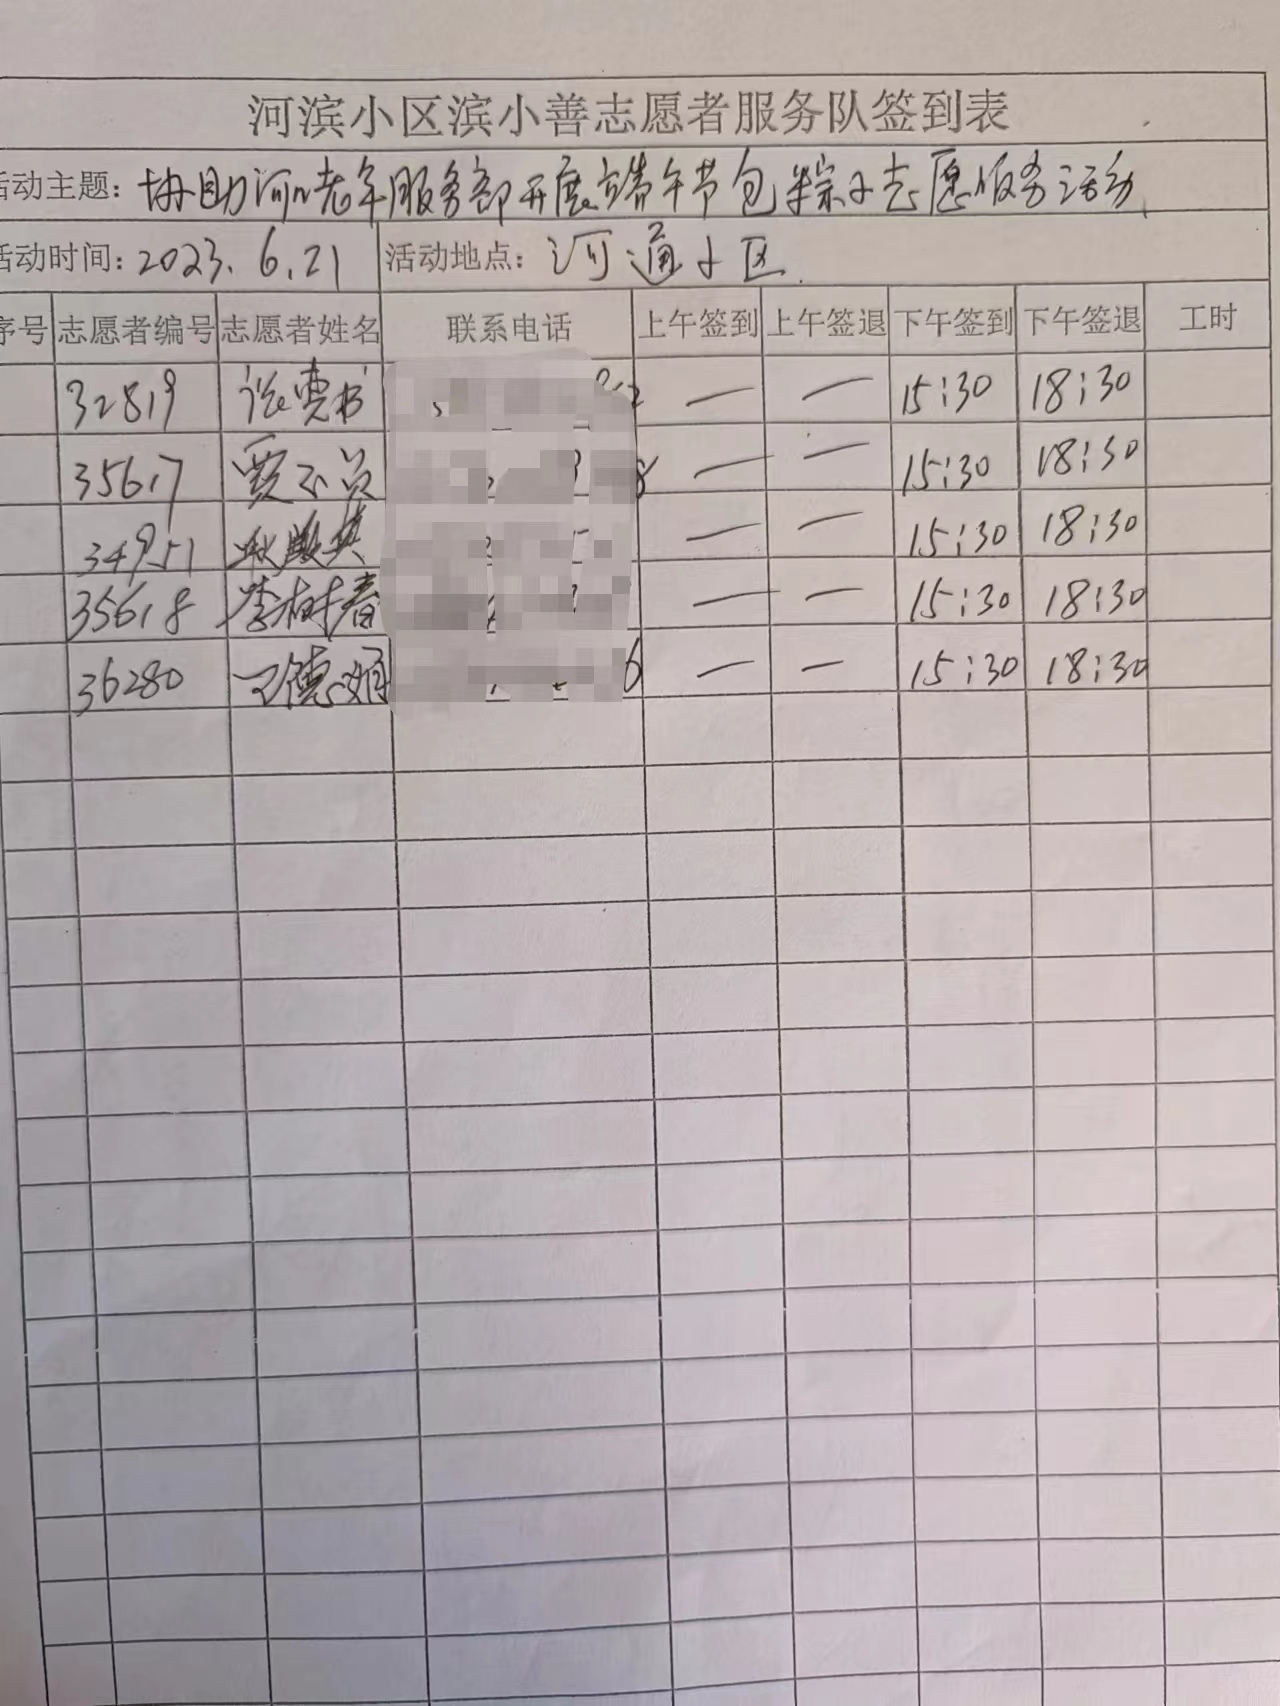 河滨小区滨小善志愿者服务队签到表
活动主题: 协助河心老年服务部开展端午节包粽子志愿服务活动
活动时间: 2023.6.21 活动地点: 河通小区
序号 志愿者编号 志愿者姓名 联系电话 上午签到 上午签退 下午签到 下午签退 工时
32819 — — 15:30 18:30
35617 8 — — 15:30 18:30
34951 — — 15:30 18:30
35618 李树春 — — 15:30 18:30
36280 王德娟 6 — — 15:30 18:30